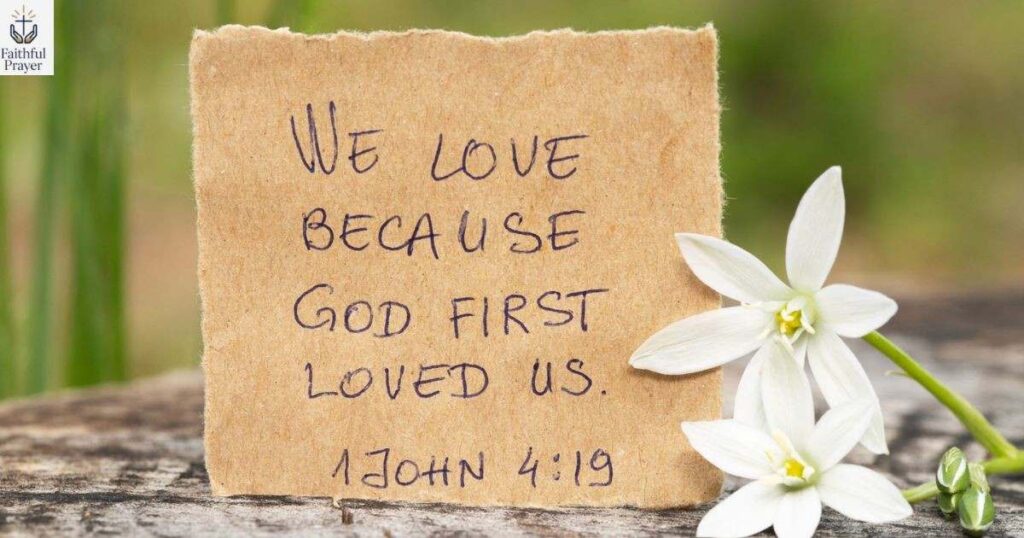 Faithful
Prayer
WE LOVE
BECAUSE
GOD FIRST
LOVED US.
1 JOHN 4:19